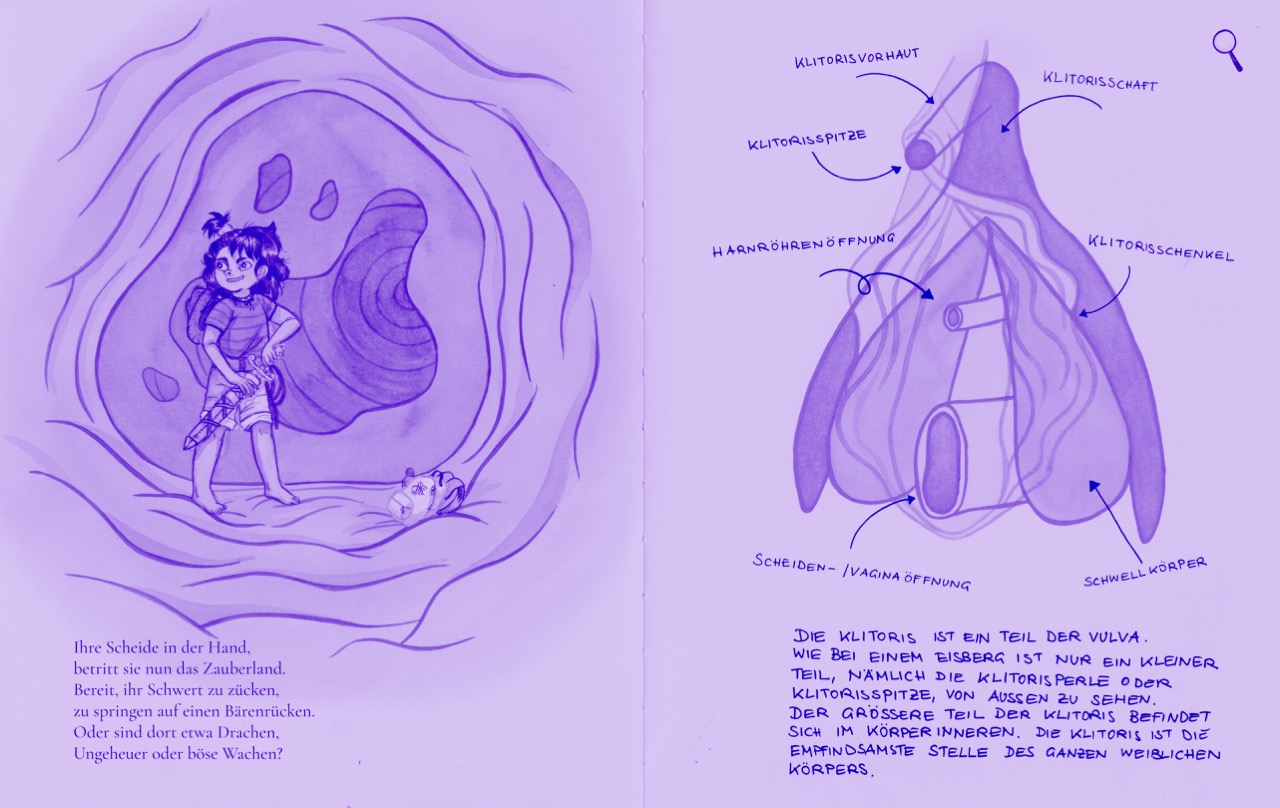 Ihre Scheide in der Hand,
betritt sie nun das Zauberland.
Bereit, ihr Schwert zu zücken,
zu springen auf einen Bärenrücken.
Oder sind dort etwa Drachen,
Ungeheuer oder böse Wachen?
KLITORISVORHAUT
KLITORISSCHAFT
KLITORISSPITZE
HARNRÖHRENÖFFNUNG
KLITORISSCHENKEL
SCHEIDEN- /VAGINAÖFFNUNG
SCHWELLKÖRPER
DIE KLITORIS IST EIN TEIL DER VULVA.
WIE BEI EINEM EISBERG IST NUR EIN KLEINER
TEIL, NÄMLICH DIE KLITORISPERLE ODER
KLITORISSPITZE, VON AUSSEN ZU SEHEN.
DER GRÖSSERE TEIL DER KLITORIS BEFINDET
SICH IM KÖRPERINNEREN. DIE KLITORIS IST DIE
EMPFINDSAMSTE STELLE DES GANZEN WEIBLICHEN
KÖRPERS.